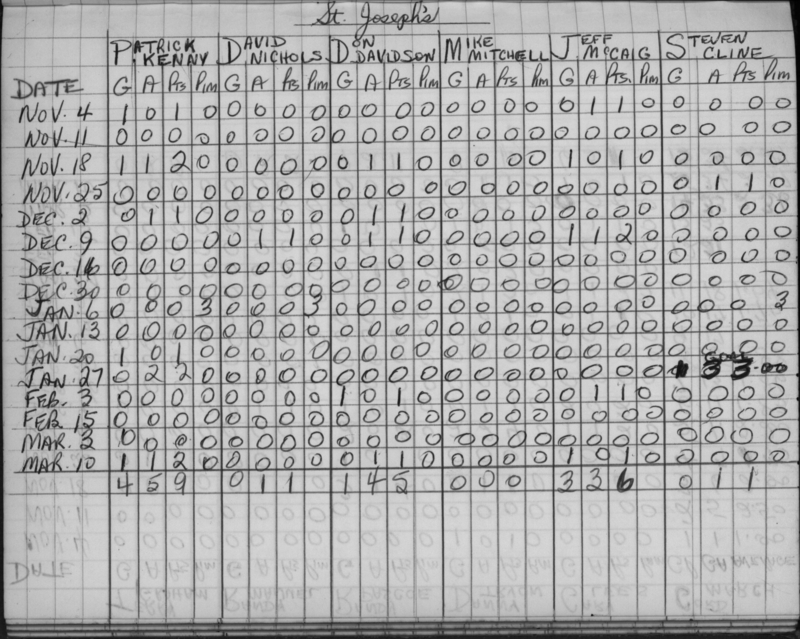 St. Joseph's
PATRICK KENNY DAVID NICHOLS DON DAVIDSON MIKE MITCHELL JEFF MCCAIG STEVEN CLINE
DATE G A Pts Pim G A Pts Pim G A Pts Pim G A Pts Pim G A Pts. Pim G A Pts Pim
NOV. 4 1 0 1 0 0 0 0 0 0 0 0 0 0 0 0 0 0 1 1 0 0 0 0 0
NOV. 11 0 0 0 0 0 0 0 0 0 0 0 0 0 0 0 0 0 0 0 0 0 0 0 0
NOV. 18 1 1 2 0 0 0 0 0 0 1 1 0 0 0 0 0 1 0 1 0 0 0 0 0
NOV. 25 0 0 0 0 0 0 0 0 0 0 0 0 0 0 0 0 0 0 0 0 0 1 1 0
DEC. 2 0 1 1 0 0 0 0 0 0 1 1 0 0 0 0 0 0 0 0 0 0 0 0 0
DEC. 9 0 0 0 0 0 1 1 0 0 1 1 0 0 0 0 0 1 1 2 0 0 0 0 0
DEC. 16 0 0 0 0 0 0 0 0 0 0 0 0 0 0 0 0 0 0 0 0 0 0 0 0
DEC. 30 0 0 0 0 0 0 0 0 0 0 0 0 0 0 0 0 0 0 0 0 0 0 0 0
JAN. 6 0 0 0 3 0 0 0 3 0 0 0 0 0 0 0 0 0 0 0 0 0 0 0 3
JAN. 13 0 0 0 0 0 0 0 0 0 0 0 0 0 0 0 0 0 0 0 0 0 0 0 0
JAN. 20 1 0 1 0 0 0 0 0 0 0 0 0 0 0 0 0 0 0 0 0 0 0 0 0
JAN. 27 0 2 2 0 0 0 0 0 0 0 0 0 0 0 0 0 0 0 0 0 1 3 3.00
FEB. 3 0 0 0 0 0 0 0 0 1 0 1 0 0 0 0 0 0 1 1 0 0 0 0 0
FEB 15 0 0 0 0 0 0 0 0 0 0 0 0 0 0 0 0 0 0 0 0 0 0 0 0
MAR. 3 0 0 0 0 0 0 0 0 0 0 0 0 0 0 0 0 0 0 0 0 0 0 0 0
MAR. 10 1 1 2 0 0 0 0 0 0 1 1 0 0 0 0 0 1 0 1 0 0 0 0 0
4 5 9 0 1 1 1 4 5 0 0 0 3 3 6 0 1 1